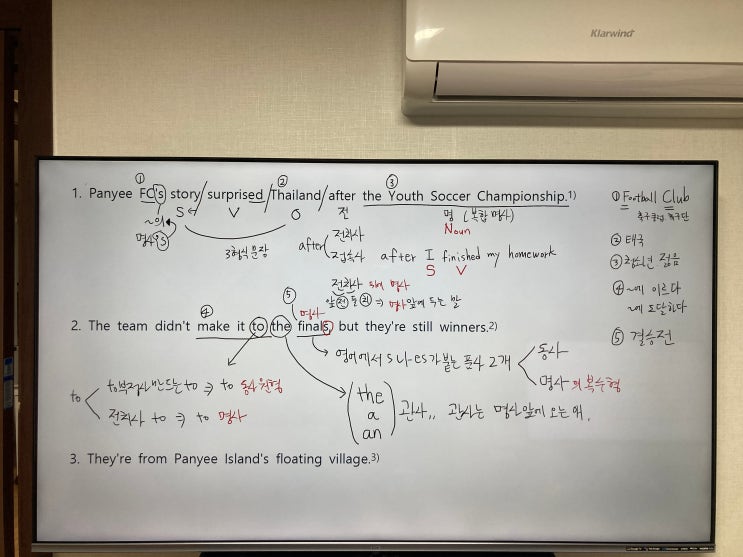 Klarwind
① ② ③
1. Panyee FC's story/surprised/Thailand/after the Youth Soccer Championship.1)
~의 S V O 전 명 (복합명사)
명사's 3형식 문장 Noun
after 전치사
접속사 after I finished my homework
S V
전치사 뒤에 명사
앞전 둘치 ⇒ 명사앞에 두는 말
① Football Club
축구클럽, 축구단
② 태국
③ 청소년 젊음
④ ~에 이르다
~에 도달하다
⑤ 결승전
④ ⑤ 명사
2. The team didn't make it to the finals, but they're still winners.2)
영어에서 s나 -es가 붙는 품사 2개 동사
명사의 복수형
to to부정사 만드는 to ⇒ to 동사원형
전치사 to ⇒ to 명사
the
a
an
관사,, 관사는 명사앞에 오는 애.
3. They're from Panyee Island's floating village.3)